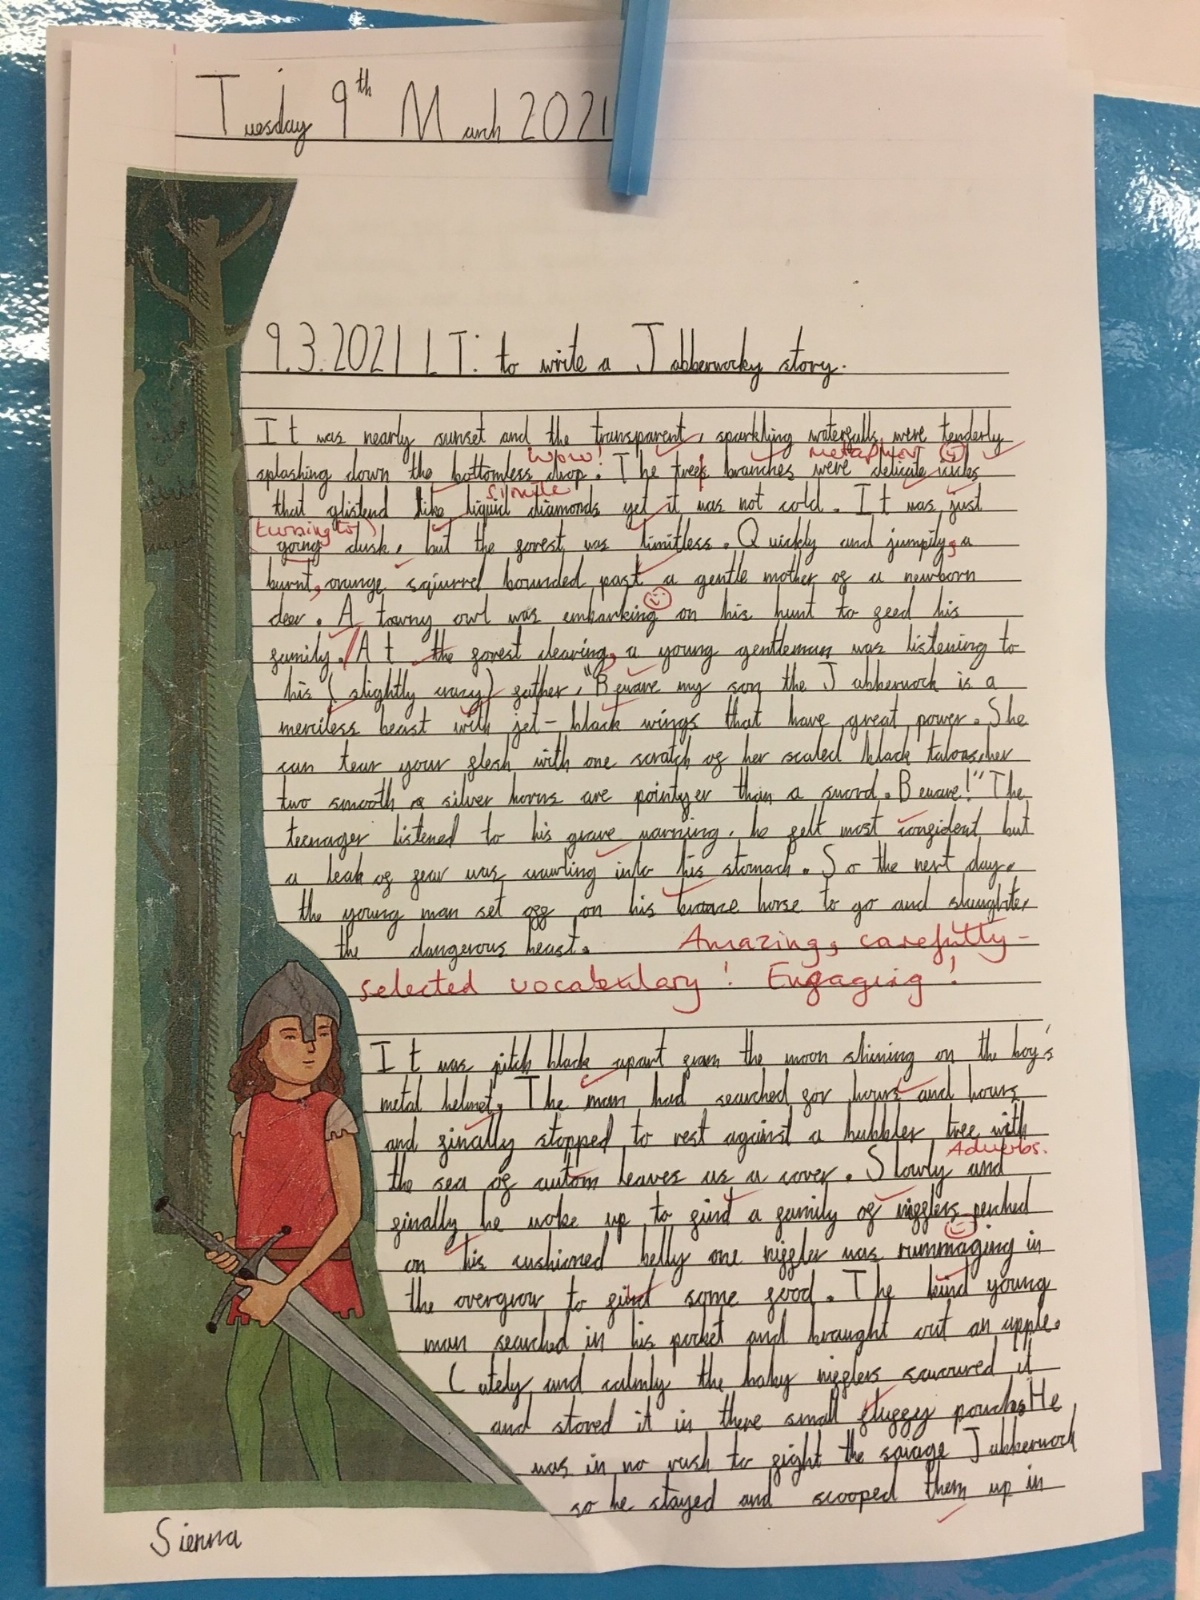 Tuesday 9th March 2021
9.3.2021 LT: to write a Jabberwocky story.
It was nearly sunset and the transparent, sparkling waterfalls were tenderly
Wow! metaphor
splashing down the bottomless drop. The trees branches were delicate
simile
that glistend like liquid diamonds yet it was not cold. It was just
turning to
going dusk, but the forest was limitless. Quickly and jumpily, a
burnt, orange squirrel bounded past a gentle mother of a newborn
deer. A tawny owl was embarking on his hunt to feed his
family. At the forest clearing, a young gentleman was listening to
his (slightly crazy) father, "Beware my son the Jabberwock is a
merciless beast with jet-black wings that have great power. She
can tear your flesh with one scratch of her scaled black talons, her
two smooth silver horns are pointyer than a sword. Beware!" The
teenager listened to his grave warning, he felt most confident but
a leak of fear was crawling into his stomach. So the next day,
the young man set off on his horse to go and slaughter
the dangerous beast. Amazing, carefully-
selected vocabulary! Engaging!
It was pitch black apart from the moon shining on the boy's
metal helmet. The man had searched for hours and hours
and finally stopped to rest against a hubbler tree with
Adverbs.
the sea of autom leaves as a cover. Slowly and
finally he woke up to find a family of nigglers perched
on his cushioned belly one niggler was rummaging in
the overgrow to find some food. The kind young
man searched in his pocket and braught out an apple.
Cutely and calmly the baby nigglers savoured it
and stored it in there small fluffy pouchs. He
was in no rush to fight the savage Jabberwock
so he stayed and scooped them up in
Sienna